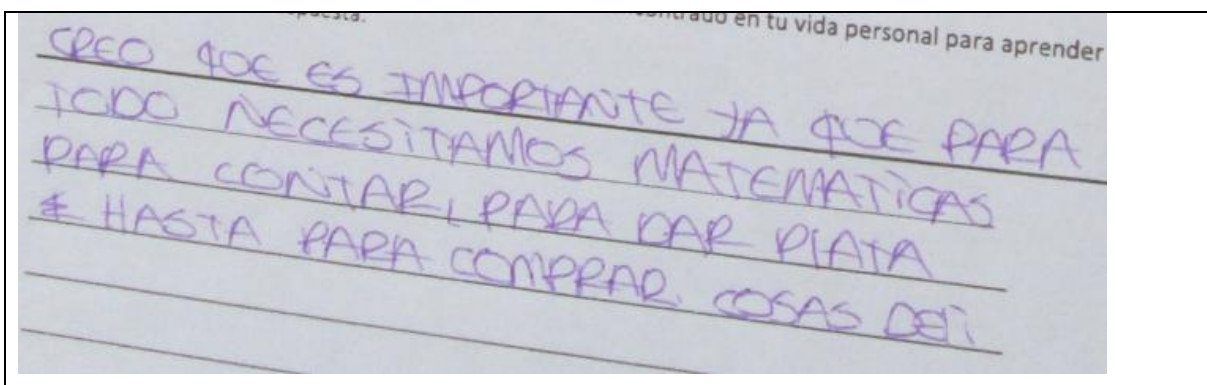 ncontrado en tu vida personal para aprender
CREO QUE ES IMPORTANTE YA QUE PARA
TODO NECESITAMOS MATEMATICAS
PARA CONTAR, PARA DAR PLATA
HASTA PARA COMPRAR COSAS